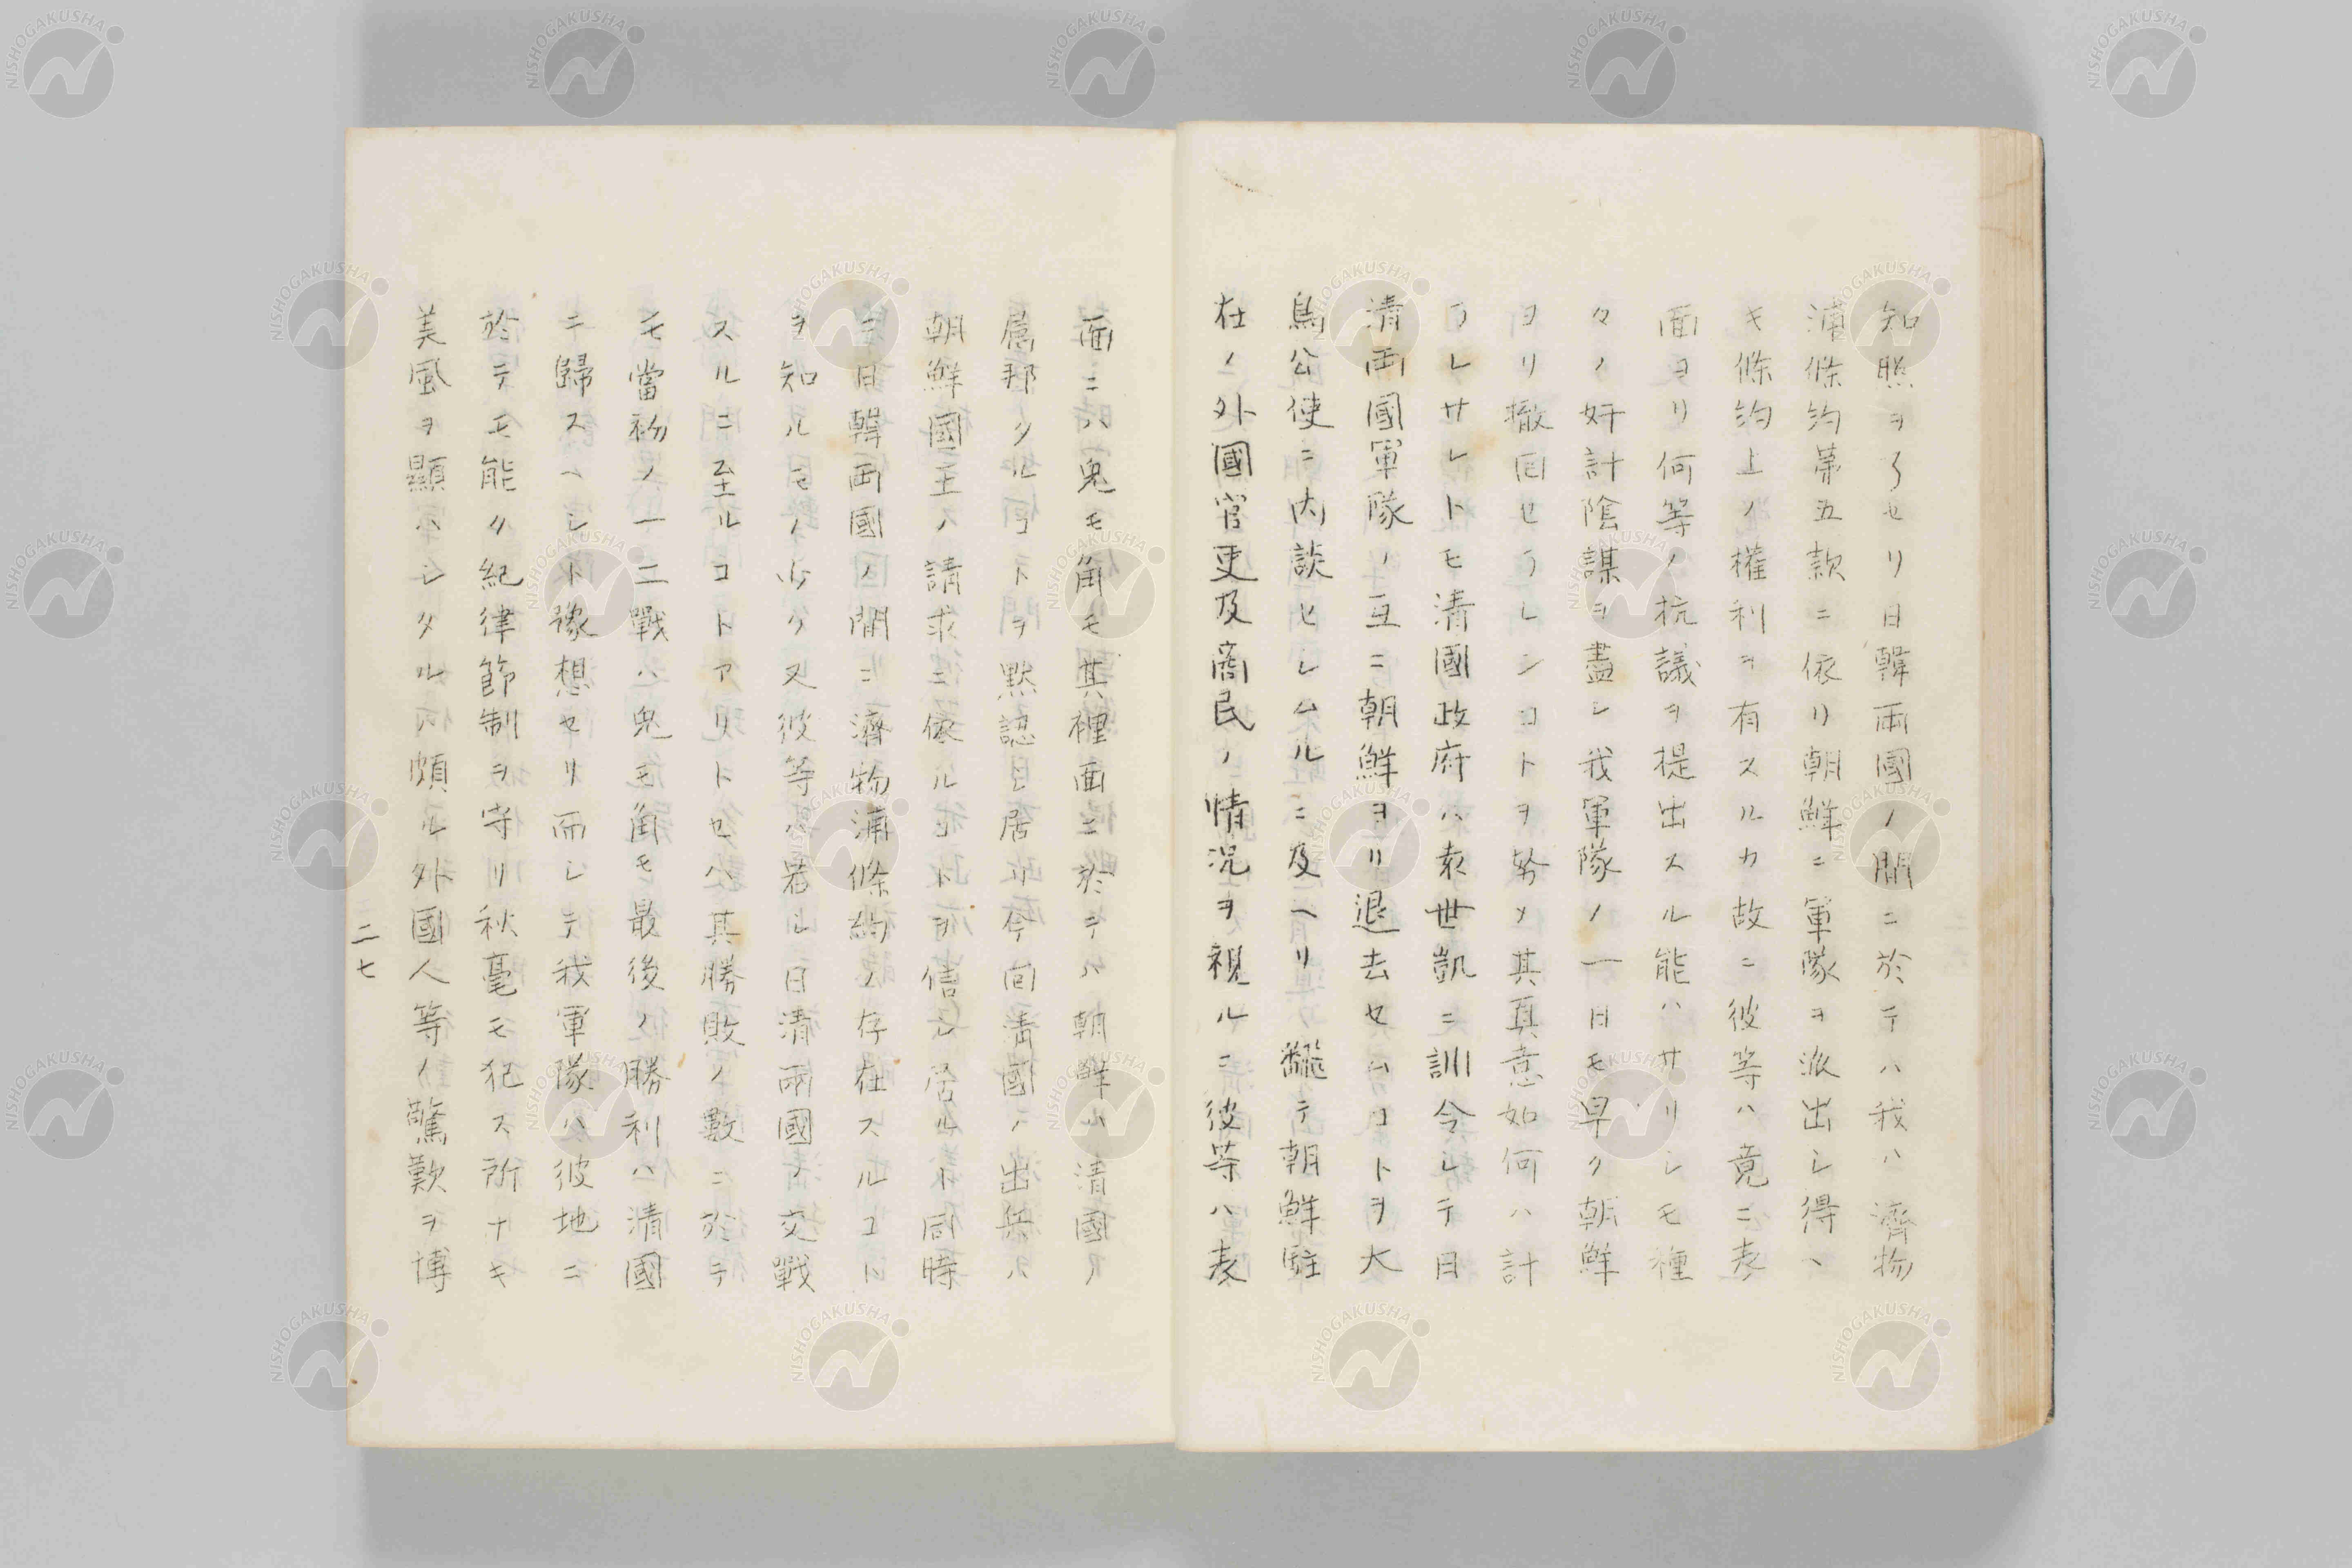 知照ヲ了セリ日韓両國ノ間ニ於テハ我ハ濟物
浦條約第五款ニ依リ朝鮮ニ軍隊ヲ派出シ得ヘ
キ條約上ノ權利ヲ有スルカ故ニ彼等ハ竟ニ表
面ヨリ何等ノ抗議ヲ提出スル能ハサリシモ種
々ノ奸計陰謀ヲ盡シ我軍隊ノ一日モ早ク朝鮮
ヨリ撤囘セラレンコトヲ努メ其真意如何ハ計
ラレサレトモ清國政府ハ袁世凱ニ訓令シテ日
清両國軍隊ノ互ニ朝鮮ヨリ退去セムコトヲ大
鳥公使ニ内談セシムルニ及ヘリ飜テ朝鮮駐
在ノ外國官吏及商民ノ情況ヲ視ルニ彼等ハ表
面ニハ兔モ角モ其裡面ニ於テハ朝鮮ハ清國ノ
属邦タルコトヲ黙認シ居リ今囘清國ノ出兵ハ
朝鮮國王ノ請求ニ依ルコトヲ信シ居ルト同時
ニ日韓両國ノ間ニ濟物浦條約ノ存在スルコト
ヲ知ルモノ少ク又彼等ハ若シ日清両國ノ交戰
スルニ至ルコトアリトセハ其勝敗ノ數ニ於テ
モ當初ノ一二戰ハ兔モ角モ最後ノ勝利ハ清國
ニ歸スヘシト豫想セリ而シテ我軍隊ハ彼地ニ
於テモ能ク紀律節制ヲ守リ秋毫モ犯ス所ナキ
美風ヲ顯ハシタルハ頗ル外國人等ノ驚歎ヲ博
二七
NISHOGAKUSHA